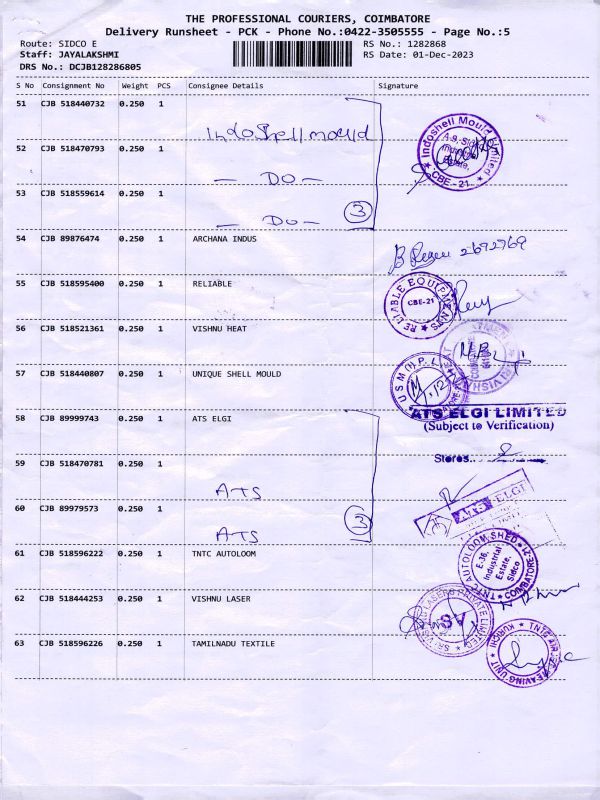 THE PROFESSIONAL COURIERS, COIMBATORE
Delivery Runsheet - PCK - Phone No.:0422-3505555 - Page No.:5
Route: SIDCO E
RS No.: 1282868
Staff: JAYALAKSHMI
RS Date: 01-Dec-2023
DRS No.: DCJB128286805
S No Consignment No Weight PCS Consignee Details Signature
51 CJB 518440732 0.250 1
Indoshellmould
52 CJB 518470793 0.250 1
- DO -
53 CJB 518559614 0.250 1
- DO -
3
Indoshell Mould Limited
CBE - 21.
54 CJB 89876474 0.250 1 ARCHANA INDUS
2692769
55 CJB 518595400 0.250 1 RELIABLE
RELIABLE EQUIPMENTS
CBE-21
56 CJB 518521361 0.250 1 VISHNU HEAT
57 CJB 518440807 0.250 1 UNIQUE SHELL MOULD
58 CJB 89999743 0.250 1 ATS ELGI
ATS ELGI LIMITED
(Subject to Verification)
59 CJB 518470781 0.250 1
Stores..
ATS
60 CJB 89979573 0.250 1
ATS
3
ATS ELGI
61 CJB 518596222 0.250 1 TNTC AUTOLOOM
TNTC AUTOLOOM SHED
E-36,
Industrial
Estate,
Sidco
COIMBATORE-21
62 CJB 518444253 0.250 1 VISHNU LASER
63 CJB 518596226 0.250 1 TAMILNADU TEXTILE